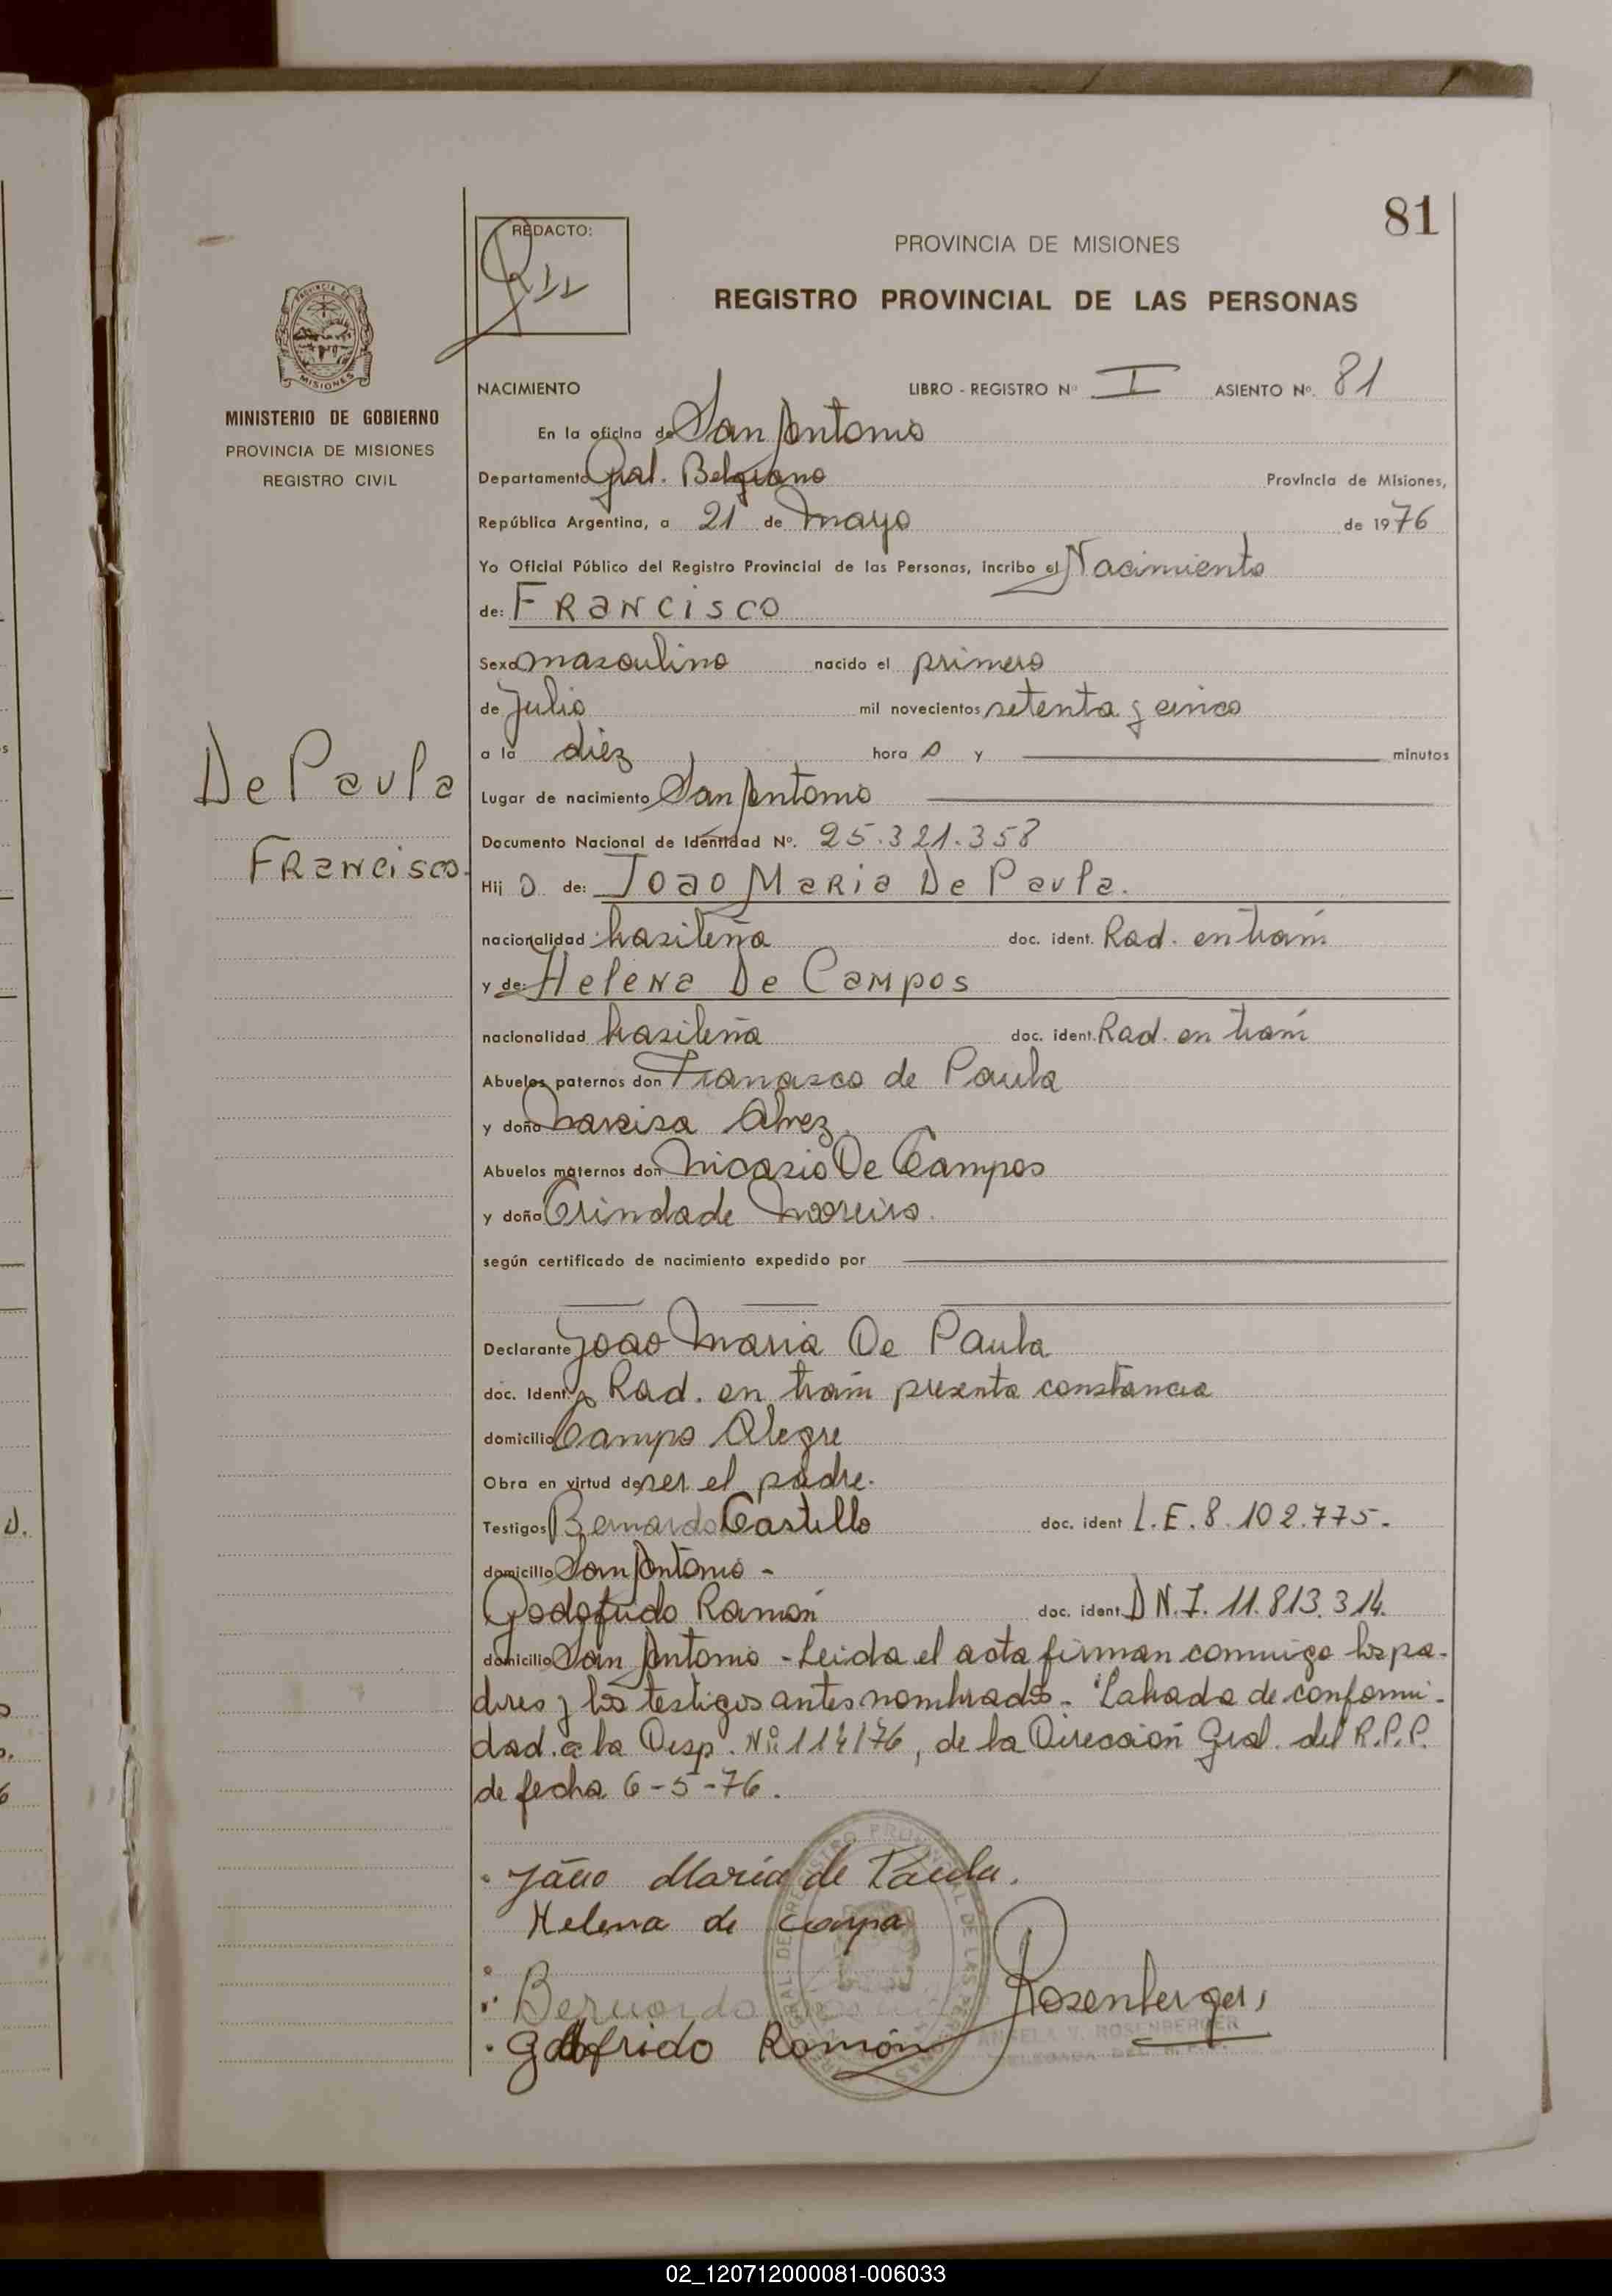 81
REDACTO:
PROVINCIA DE MISIONES
REGISTRO PROVINCIAL DE LAS PERSONAS
PROVINCIA DE
MISIONES
MINISTERIO DE GOBIERNO
PROVINCIA DE MISIONES
REGISTRO CIVIL
NACIMIENTO LIBRO - REGISTRO Nº I ASIENTO Nº. 81
En la oficina de San Antonio
Departamento Gral. Belgrano Provincia de Misiones,
República Argentina, a 21 de mayo de 1976
Yo Oficial Público del Registro Provincial de las Personas, incribo el Nacimiento
de: FRANCISCO
Sexo masculino nacido el primero
de Julio mil novecientos setenta y cinco
a la diez hora s y minutos
De Paula
Francisco.
Lugar de nacimiento San Antonio
Documento Nacional de Identidad Nº. 25.321.358
Hij o de: Joao Maria De Paula.
nacionalidad brasileña doc. ident. Rad. en tram
y de: Helena De Campos
nacionalidad brasileña doc. ident. Rad. en tram
Abuelos paternos don Francisco de Paula
y doña Narcisa Alvez.
Abuelos maternos don Nicasio De Campos
y doña Trindade Moreira.
según certificado de nacimiento expedido por
Declarante Joao Maria De Paula
doc. Ident. Rad. en tram presenta constancia
domicilio Campo Alegre
Obra en virtud de ser el padre.
Testigos Bernardo Castillo doc. ident L.E. 8.102.775.-
domicilio San Antonio -
Godofrido Ramón doc. ident. D.N.I. 11.813.314.
domicilio San Antonio - Leida el acta firman conmigo los pa-
dres y los testigos antes nombrados - Labrada de conformi-
dad a la Disp. Nº 114/76, de la Dirección Gral. del R.P.P.
de fecha 6-5-76.
João Maria de Paula.
Helena de campa
Bernardo
Rosenberger
ANGELA V. ROSENBERGER
DELEGADA DEL R.P.P.
Godofrido Ramón
02_120712000081-006033